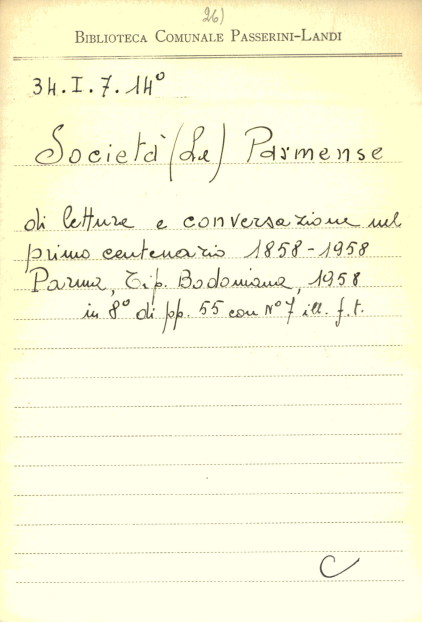 26)
BIBLIOTECA COMUNALE PASSERINI-LANDI
34.I.7.14°
Società (Le) Parmense
di letture e conversazione nel
primo centenario 1858-1958
Parma, Tip. Bodoniana, 1958
in 8° di pp. 55 con N° 7 ill. f.t.
C